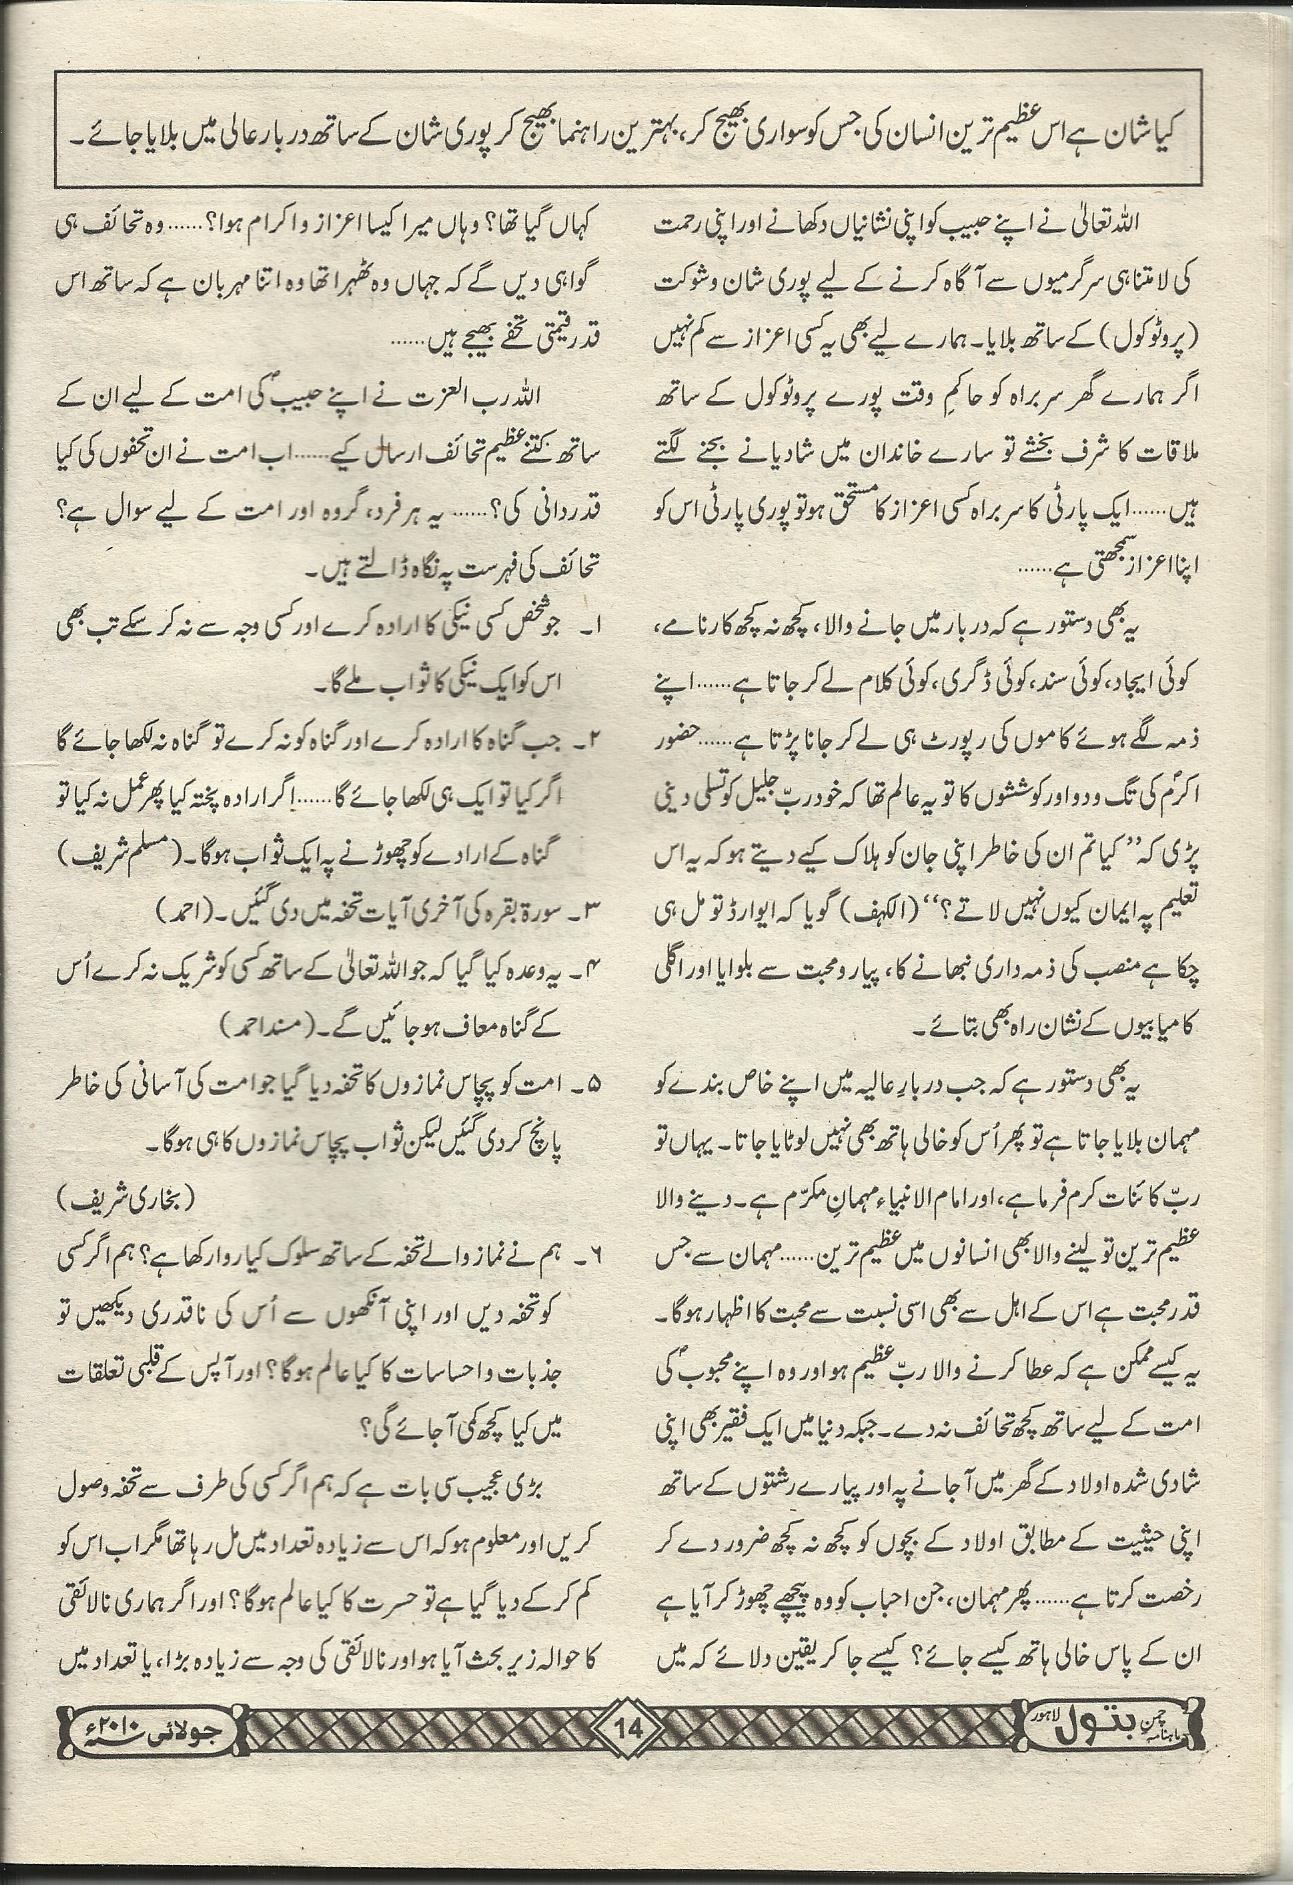 کیا شان ہے اس عظیم ترین انسان کی جس کو سواری بھیج کر، بہترین راہنما بھیج کر پوری شان کے ساتھ دربار عالی میں بلایا جائے۔
اللہ تعالیٰ نے اپنے حبیب کو اپنی نشانیاں دکھانے اور اپنی رحمت
کی لامتناہی سرگرمیوں سے آگاہ کرنے کے لیے پوری شان و شوکت
(پروٹوکول) کے ساتھ بلایا۔ ہمارے لیے بھی یہ کسی اعزاز سے کم نہیں
اگر ہمارے گھر سربراہ کو حاکمِ وقت پورے پروٹوکول کے ساتھ
ملاقات کا شرف بخشے تو سارے خاندان میں شادیانے بجنے لگتے
ہیں......ایک پارٹی کا سربراہ کسی اعزاز کا مستحق ہو تو پوری پارٹی اس کو
اپنا اعزاز سمجھتی ہے......
یہ بھی دستور ہے کہ دربار میں جانے والا، کچھ نہ کچھ کارنامے،
کوئی ایجاد، کوئی سند، کوئی ڈگری، کوئی کلام لے کر جاتا ہے......اپنے
ذمہ لگے ہوئے کاموں کی رپورٹ ہی لے کر جانا پڑتا ہے......حضور
اکرمؐ کی تگ و دو اور کوششوں کا تو یہ عالم تھا کہ خود ربّ جلیل کو تسلی دینی
پڑی کہ ”کیا تم ان کی خاطر اپنی جان کو ہلاک کیے دیتے ہو کہ یہ اس
تعلیم پہ ایمان کیوں نہیں لاتے؟“ (الکہف) گویا کہ ایوارڈ تو مل ہی
چکا ہے منصب کی ذمہ داری نبھانے کا، پیار و محبت سے بلوایا اور اگلی
کامیابیوں کے نشان راہ بھی بتائے۔
یہ بھی دستور ہے کہ جب دربارِ عالیہ میں اپنے خاص بندے کو
مہمان بلایا جاتا ہے تو پھر اُس کو خالی ہاتھ بھی نہیں لوٹایا جاتا۔ یہاں تو
ربّ کائنات کرم فرما ہے، اور امام الانبیاء مہمانِ مکرّم ہے۔ دینے والا
عظیم ترین تو لینے والا بھی انسانوں میں عظیم ترین......مہمان سے جس
قدر محبت ہے اس کے اہل سے بھی اسی نسبت سے محبت کا اظہار ہوگا۔
یہ کیسے ممکن ہے کہ عطا کرنے والا ربّ عظیم ہو اور وہ اپنے محبوبؐ کی
امت کے لیے ساتھ کچھ تحائف نہ دے۔ جبکہ دنیا میں ایک فقیر بھی اپنی
شادی شدہ اولاد کے گھر میں آ جانے پہ اور پیارے رشتوں کے ساتھ
اپنی حیثیت کے مطابق اولاد کے بچوں کو کچھ نہ کچھ ضرور دے کر
رخصت کرتا ہے......پھر مہمان، جن احباب کو وہ پیچھے چھوڑ کر آیا ہے
ان کے پاس خالی ہاتھ کیسے جائے؟ کیسے جا کر یقین دلائے کہ میں
کہاں گیا تھا؟ وہاں میرا کیسا اعزاز و اکرام ہوا؟......وہ تحائف ہی
گواہی دیں گے کہ جہاں وہ ٹھہرا تھا وہ اتنا مہربان ہے کہ ساتھ اس
قدر قیمتی تحفے بھیجے ہیں......
اللہ رب العزت نے اپنے حبیبؐ کی امت کے لیے ان کے
ساتھ کتنے عظیم تحائف ارسال کیے......اب امت نے ان تحفوں کی کیا
قدر دانی کی؟......یہ ہر فرد، گروہ اور امت کے لیے سوال ہے؟
تحائف کی فہرست پہ نگاہ ڈالتے ہیں۔
۱۔ جو شخص کسی نیکی کا ارادہ کرے اور کسی وجہ سے نہ کر سکے تب بھی
اس کو ایک نیکی کا ثواب ملے گا۔
۲۔ جب گناہ کا ارادہ کرے اور گناہ کو نہ کرے تو گناہ نہ لکھا جائے گا
اگر کیا تو ایک ہی لکھا جائے گا......اگر ارادہ پختہ کیا پھر عمل نہ کیا تو
گناہ کے ارادے کو چھوڑنے پہ ایک ثواب ہوگا۔ (مسلم شریف)
۳۔ سورۃ بقرہ کی آخری آیات تحفہ میں دی گئیں۔ (احمد)
۴۔ یہ وعدہ کیا گیا کہ جو اللہ تعالیٰ کے ساتھ کسی کو شریک نہ کرے اُس
کے گناہ معاف ہو جائیں گے۔ (مسند احمد)
۵۔ امت کو پچاس نمازوں کا تحفہ دیا گیا جو امت کی آسانی کی خاطر
پانچ کر دی گئیں لیکن ثواب پچاس نمازوں کا ہی ہوگا۔
(بخاری شریف)
۶۔ ہم نے نماز والے تحفہ کے ساتھ سلوک کیا روا رکھا ہے؟ ہم اگر کسی
کو تحفہ دیں اور اپنی آنکھوں سے اُس کی ناقدری دیکھیں تو
جذبات و احساسات کا کیا عالم ہوگا؟ اور آپس کے قلبی تعلقات
میں کیا کچھ کمی آ جائے گی؟
بڑی عجیب سی بات ہے کہ ہم اگر کسی کی طرف سے تحفہ وصول
کریں اور معلوم ہو کہ اس سے زیادہ تعداد میں مل رہا تھا مگر اب اس کو
کم کر کے دیا گیا ہے تو حسرت کا کیا عالم ہوگا؟ اور اگر ہماری نالائقی
کا حوالہ زیر بحث آیا ہو اور نالائقی کی وجہ سے زیادہ بڑا، یا تعداد میں
ماہنامہ چمنِ بتول لاہور
14
جولائی ۲۰۱۰ء